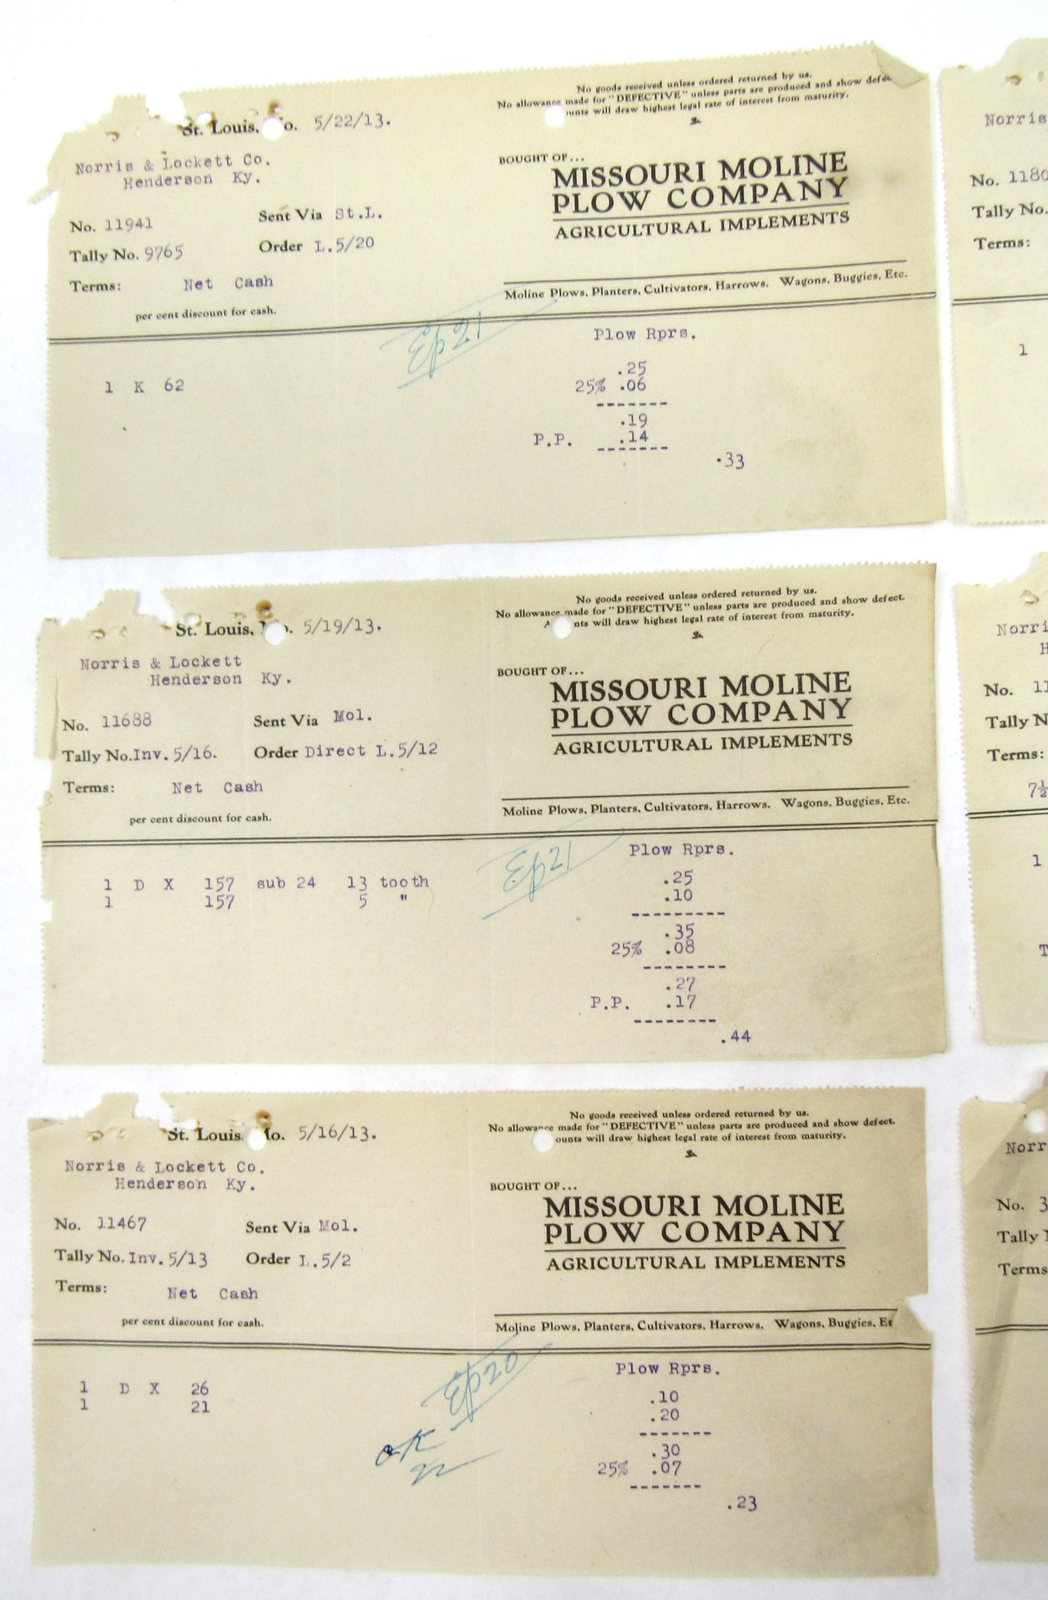 No goods received unless ordered returned by us.
No allowance made for "DEFECTIVE" unless parts are produced and show defec
unts will draw highest legal rate of interest from maturity.
St. Louis, o. 5/22/13.
Norris & Lockett Co.
Henderson Ky.
BOUGHT OF...
MISSOURI MOLINE
PLOW COMPANY
AGRICULTURAL IMPLEMENTS
No. 11941 Sent Via St.L.
Tally No. 9765 Order L.5/20
Terms: Net Cash
per cent discount for cash.
Moline Plows, Planters, Cultivators, Harrows. Wagons, Buggies, Etc.
Plow Rprs.
1 K 62
.25
25% .06
-------
.19
P.P. .14
-------
.33
No goods received unless ordered returned by us.
No allowance made for "DEFECTIVE" unless parts are produced and show defect.
A nts will draw highest legal rate of interest from maturity.
St. Louis, o. 5/19/13.
Norris & Lockett
Henderson Ky.
BOUGHT OF...
MISSOURI MOLINE
PLOW COMPANY
AGRICULTURAL IMPLEMENTS
No. 11688 Sent Via Mol.
Tally No. Inv. 5/16. Order Direct L.5/12
Terms: Net Cash
per cent discount for cash.
Moline Plows, Planters, Cultivators, Harrows. Wagons, Buggies, Etc.
Plow Rprs.
1 D X 157 sub 24 13 tooth .25
1 157 5 " .10
---------
.35
25% .08
--------
.27
P.P. .17
--------
.44
No goods received unless ordered returned by us.
No allowance made for "DEFECTIVE" unless parts are produced and show defect.
ounts will draw highest legal rate of interest from maturity.
St. Louis, Mo. 5/16/13.
Norris & Lockett Co.
Henderson Ky.
BOUGHT OF...
MISSOURI MOLINE
PLOW COMPANY
AGRICULTURAL IMPLEMENTS
No. 11467 Sent Via Mol.
Tally No. Inv. 5/13 Order L.5/2
Terms: Net Cash
per cent discount for cash.
Moline Plows, Planters, Cultivators, Harrows. Wagons, Buggies, Et
Plow Rprs.
1 D X 26 .10
1 21 .20
OK
-------
.30
25% .07
-------
.23
Norris
No. 1180
Tally No.
Terms:
1
Norri
H
No. 11
Tally N
Terms:
7½
1
T
Norr
No. 3
Tally
Terms